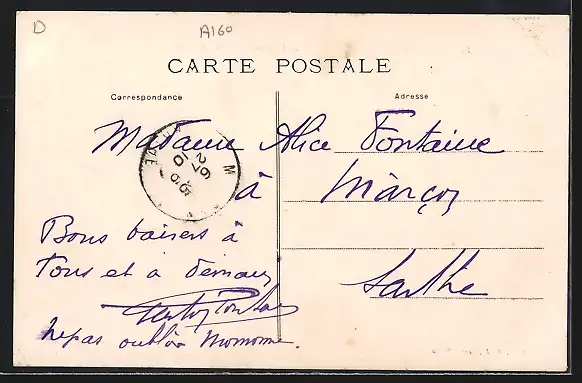 D
A160
CARTE POSTALE
Correspondance
Adresse
Madame Alice Fontaine
à Marçon
Sarthe
Bons baisers à
Tous et à demain
ne pas oublier Momonne.